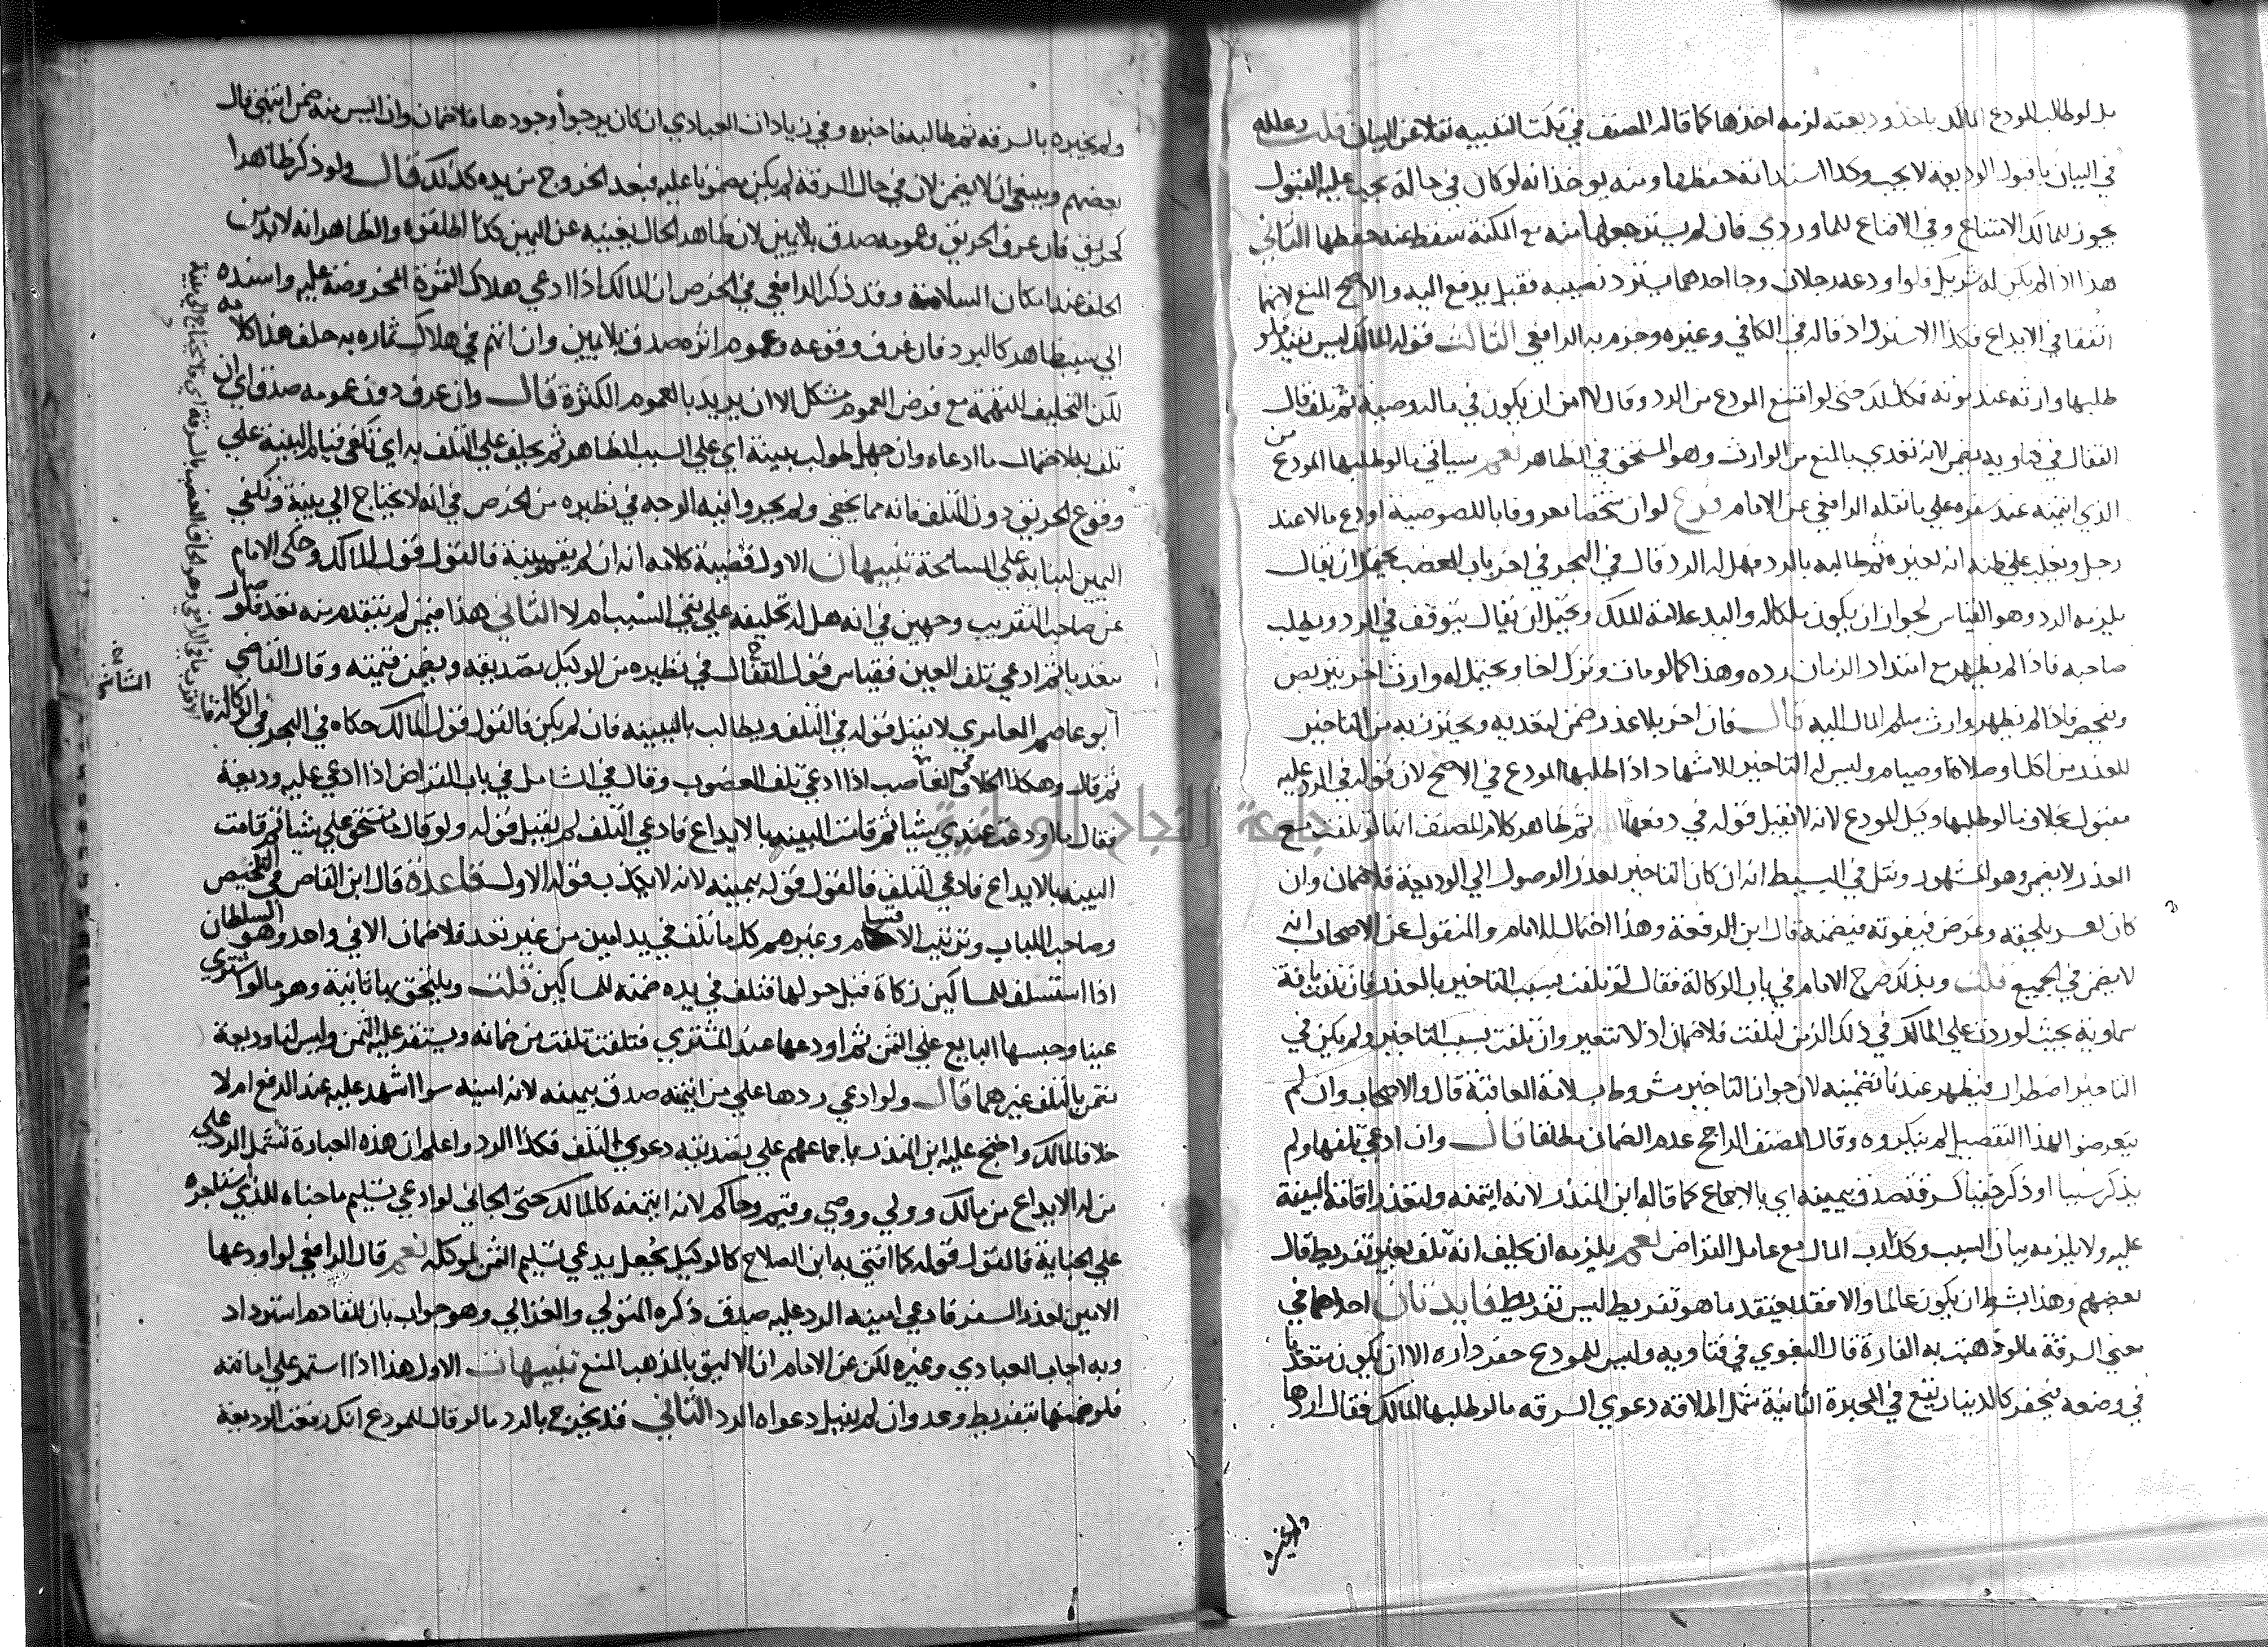 بل لو طالب المودع المالك باخذ وديعته لزمه اخذها كما قاله المصنف في نكت التنبيه نقلا عن البيان قلت وعلله
في البيان بان قبول الوديعة لا يجب وكذا استدامة حفظها ومنه يوخذ انه لو كان في حالة يجب عليه القبول
يجوز للمالك الامتناع وفي الاقناع للماوردي فان لم يسترجعها منه مع المكنة سقط عنه حفظها الثاني
هذا اذا لم يكن له شريك فلو اودعه رجلان وجا احدهما يسترد نصيبه فقيل يدفع اليه والاصح المنع لانهما
اتفقا في الايداع فكذا الاسترداد قاله في الكافي وغيره وجزم به الرافعي الثالث قوله المالك ليس بقيد فلو
طلبها وارثه عند موته فكذلك حتى لو امتنع المودع من الرد وقال لا امن ان يكون في ماله وصية ثم تلف قال
القفال في فتاويه يضمن لانه تعدي بالمنع من الوارث وهو المستحق في الظاهر نعم سياتي ما لو طلبها المودع من
الذي ايتمنه عند سفره علي ما نقله الرافعي عن الامام فرع لو ان شخصا معروفا باللصوصية اودع مالا عند
رجل ويغلب علي ظنه انه لغيره ثم طالبه بالرد فهل له الرد قال في البحر في اخر باب الغصب يحتمل ان يقال
يلزمه الرد وهو القياس لجواز ان يكون ملكا له واليد علامة للملك ويحتمل ان يقال يتوقف في الرد ويطلب
صاحبه فاذا لم يظهر مع امتداد الزمان رده وهذا كما لو مات وترك اخا ويحتمل له وارث اخر يتربص
ويفحص فاذا لم يظهر وارث سلم المال اليه قال فان اخر بلا عذر ضمن لتعديه ويحترز به من التاخير
للعذر من اكل او صلاة او صيام وليس له التاخير للاشهاد اذا طلبها المودع في الاصح لان قوله في الرد عليه
مقبول بخلاف ما لو طلبها وكيل المودع لانه لا يقبل قوله في دفعها اليه ثم ظاهر كلام المصنف انها لو تلفت مع
العذر لا يضمن وهو المشهور ونقل في البسيط انه ان كان التاخير لعذر الوصول الي الوديعة فلا ضمان وان
كان لعسر يلحقه وغرض فيفوته فيضمنه قال ابن الرفعة وهذا احتمال للامام والمنقول عن الاصحاب انه
لا يضمن في الجميع قلت وبذلك صرح الامام في باب الوكالة فقال لو تلفت بسبب التاخير بالعذر فان تلفت بآفة
سماوية بحيث لو ردت علي المالك في ذلك الزمن لتلفت فلا ضمان اذ لا تتغير وان تلفت بسبب التاخير ولم يكن في
التاخير اضطرار فيظهر عندنا تضمينه لان جواز التاخير مشروط بسلامة العاقبة قال والاصحاب وان لم
يتعرضوا لهذا التفصيل لم ينكروه وقال المصنف الراجح عدم الضمان مطلقا قال وان ادعي تلفها ولم
يذكر سببا او ذكر خفيا كسرقة صدق بيمينه اي بالاجماع كما قاله ابن المنذر لانه ايتمنه ولتعذر اقامة البينة
عليه ولا يلزمه بيان السبب وكذا رب المال مع عامل القراض نعم يلزمه ان يحلف انه تلف بغير تفريط قال
بعضهم وهذا بشرط ان يكون عالما والا فقد يعتقد ما هو تفريط ليس تفريط فايدتان احداهما في
معني السرقة ما لو ذهبت به الفارة قال البغوي في فتاويه وليس للمودع حفر داره الا ان يكون متعديا
في وضعه فيحفر كالدينار يقع في المحبرة الثانية شمل اطلاقه دعوي السرقه ما لو طلبها المالك فقال اردها
ولم يخبره
ولم يخبره بالسرقه ثم طالبه فاخبره وفي زيادات العبادي ان كان يرجوا وجودها فلا ضمان وان ايس منه ضمن انتهي قال
بعضهم وينبغي ان لا يضمن لان في حال السرقة لم يكن مضمونا عليه فبعد الخروج من يده كذلك قال ولو ذكر ظاهرا
كحريق فان عرف الحريق وعمومه صدق بلا يمين لان ظاهر الحال يغنيه عن اليمين كذا اطلقوه والظاهر انه لا بد من
الحلف عند امكان السلامة وقد ذكر الرافعي في الخرص ان المالك اذا ادعي هلاك الثمرة المخروصة عليه واسنده
الي سبب ظاهر كالبرد فان عرف وقوعه وعموم اثره صدق بلا يمين وان اتهم في هلاك ثماره به حلف هذا كلامه
لكن التحليف للتهمة مع فرض العموم مشكل الا ان يريد بالعموم الكثرة قال وان عرف دون عمومه صدق اي ان
تلف به لاحتمال ما ادعاه وان جهل طولب ببينة اي علي السبب الظاهر ثم يحلف علي التلف به اي تكفي قيام البينة علي
وقوع الحريق دون التلف فانه مما يخفي ولم يجروا فيه الوجه في نظيره من الخرص في انه لا يحتاج الي بينة وتكفي
اليمين لبنايه علي المسامحة تنبيهان الاول قضية كلامه انه ان لم يقم بينة فالقول قول المالك وحكي الامام
عن صاحب التقريب وجهين في انه هل له تحليفه علي نفي السبب ام لا الثاني هذا فيمن لم يتقدم منه تعد فلو صار
متعديا ثم ادعي تلف العين فقياس قول القفال في نظيره من الوكيل تصديقه ويضمن قيمته وقال القاضي
ابو عاصم العامري لا يقبل قوله في التلف ويطالب بالبينه فان لم يكن فالقول قول المالك حكاه في البحر في الوكالة
ثم قال وهكذا الخلاف في الغاصب اذا ادعي تلف المغصوب وقال في الشامل في باب القراض اذا ادعي عليه وديعة
فقال ما اودعت عندي شيئا ثم قامت البينه بالايداع فادعي التلف لم يقبل قوله ولو قال ما تستحق علي شيئا ثم قامت
البينه بالايداع فادعي التلف فالقول قوله بيمينه لانه لا يكذب قوله الاول قاعدة قال ابن القاص في التلخيص
وصاحب اللباب وترتيب الاقسام وغيرهم كل ما تلف في يد امين من غير تعد فلا ضمان الا في واحد وهو السلطان
اذا استسلف للمساكين زكاة قبل حولها فتلف في يده ضمنه للمساكين قلت ويلتحق بها ثانية وهو ما لو اشتري
عينا وحبسها البايع علي الثمن ثم اودعها عند المشتري فتلفت تلفت من ضمانه ويستقر عليه الثمن وليس لنا وديعة
تضمن بالتلف غيرهما قال ولو ادعي ردها علي من ايتمنه صدق بيمينه لانه امينه سوا اشهد عليه عند الدفع ام لا
خلافا لمالك واحتج عليه ابن المنذر باجماعهم علي تصديقه دعوي التلف فكذا الرد واعلم ان هذه العبارة تشمل الرد علي
من له الايداع من مالك وولي ووصي وقيم وحاكم لانه ايتمنه كالمالك حتي الجابي لو ادعي تسليم ما جباه للذي استاجره
علي الجباية فالقول قوله كما افتي به ابن الصلاح كالوكيل بجعل يدعي تسليم الثمن لموكله نعم قال الرافعي لو اودعها
الامين لعذر السفر فادعي امينه الرد عليه صدق ذكره المتولي والغزالي وهو جواب بان للقادم استرداد
وبه اجاب العبادي وغيره لكن عن الامام ان الاليق بالمذهب المنع تنبيهات الاول هذا اذا استمر علي امانته
فلو ضمنها بتفريط وعدوان لم يقبل دعواه الرد الثاني قد يخرج بالرد ما لو قال للمودع انك دفعت الوديعة